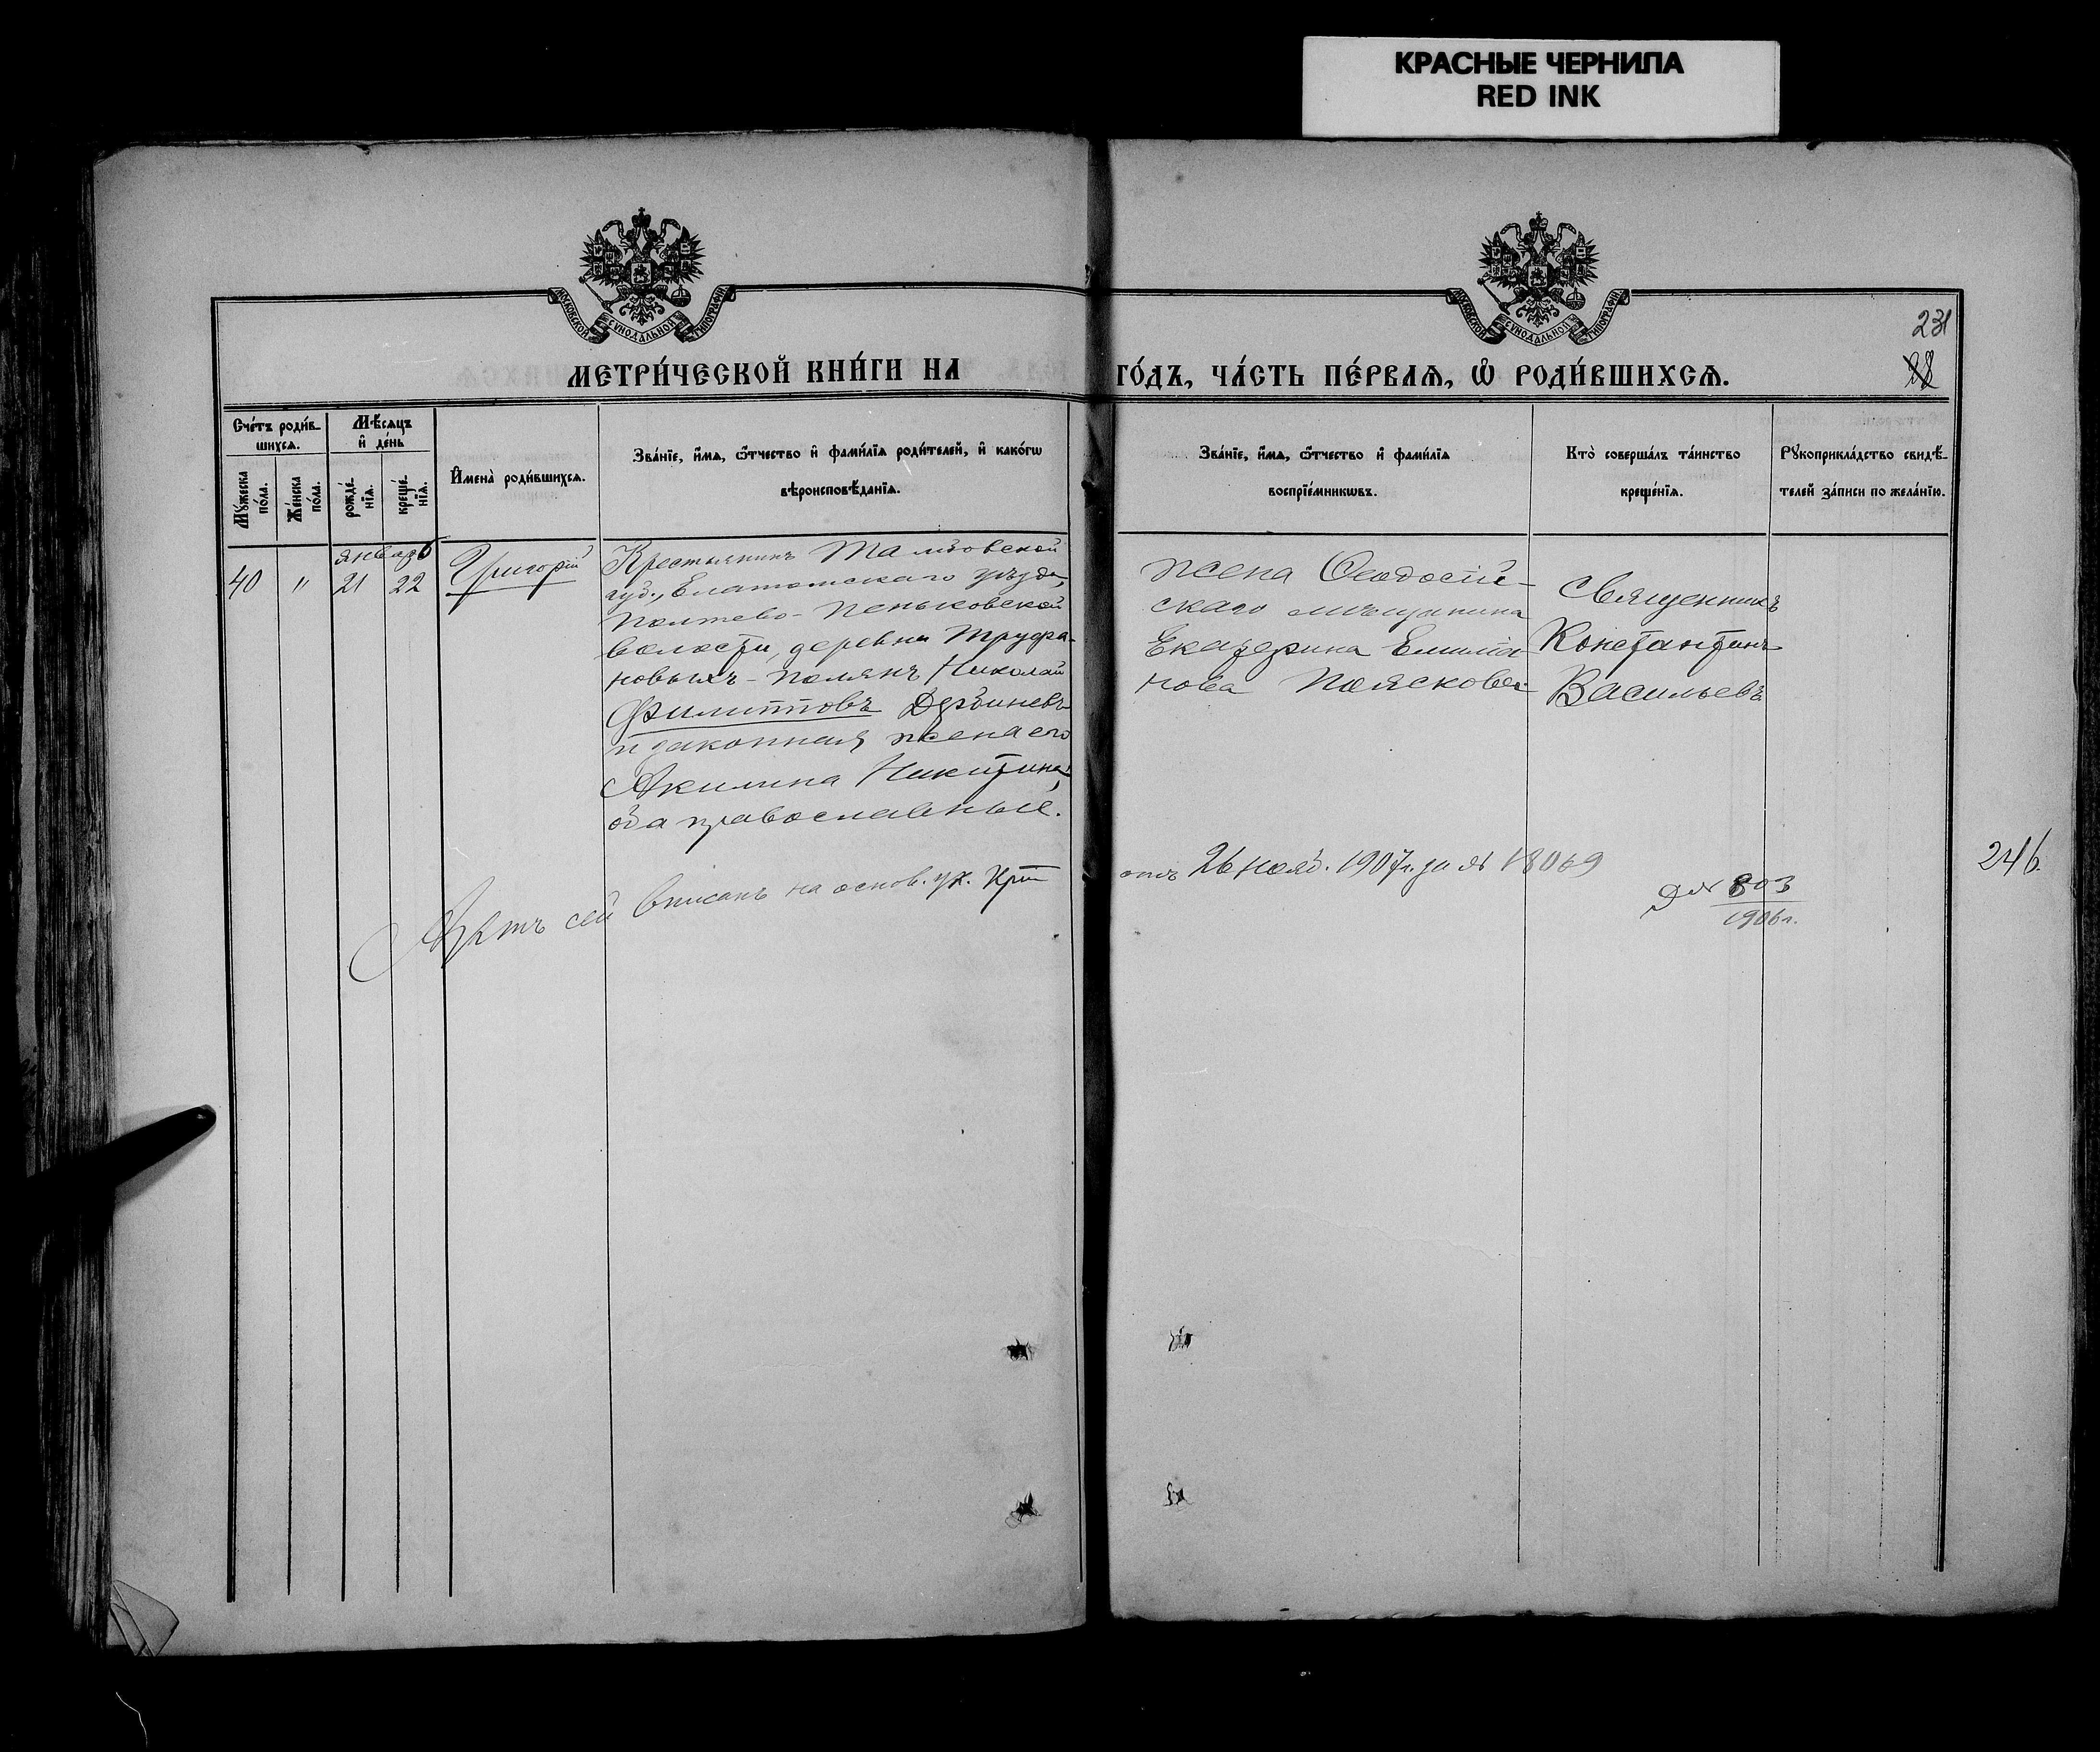 КРАСНЫЕ ЧЕРНИЛА
RED INK
МОСКОВСКОЙ СѴНОДАЛЬНОЙ ТИПОГРАФІИ
МОСКОВСКОЙ СѴНОДАЛЬНОЙ ТИПОГРАФІИ
231
МЕТРИ́ЧЕСКОЙ КНИ́ГИ НА ГО́ДЪ, ЧА́СТЬ ПЕ́РВАѦ, Ѽ РОДИ́ВШИХСѦ.
Сче́тъ роди́в-
шихсѧ.
Мꙋжеска
по́ла.
Же́нска
по́ла.
Мѣ́сѧцъ
и҆ де́нь
рожде́-
нїѧ.
креще́-
нїѧ.
И҆мена̀ роди́вшихсѧ.
Зва́нїе, и҆́мѧ, ѻ҆́тчество и҆ фами́лїѧ роди́телей, и҆ како́гѡ
вѣроисповѣ́данїѧ.
Зва́нїе, и҆́мѧ, ѻ҆́тчество и҆ фами́лїѧ
воспрїе́мникѡвъ.
Кто̀ соверша́лъ та́инство
креще́нїѧ.
Рꙋкоприкла́дство свидѣ́-
телей за́писи по жела́нїю.
январь
40 " 21 22 Григорій
Крестьянинъ Тамбовской
губ., Елатомскаго уѣзда,
Полтево-Пеньковской
волости, деревни Труфа-
новыхъ-Полянъ Николай
Филипповъ Дербиневъ
и законная жена его
Акилина Никитина,
оба православные.
жена Ѳеодосій-
скаго мѣщанина
Екатерина Емилiа-
нова Пояскова
Священникъ
Константинъ
Васильевъ
Актъ сей вписанъ на основ. ук. отъ 26 нояб. 1907 г. за № 18069
803
1906 г.
246.